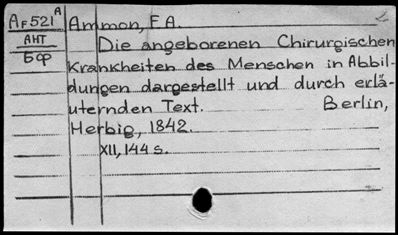 AF521A Ammon, F.A.
АНТ
БФ
Die angeborenen Chirurgischen
Krankheiten des Menschen in Abbil-
dungen dargestellt und durch erlä-
uternden Text. Berlin,
Herbig, 1842.
XII, 144 s.